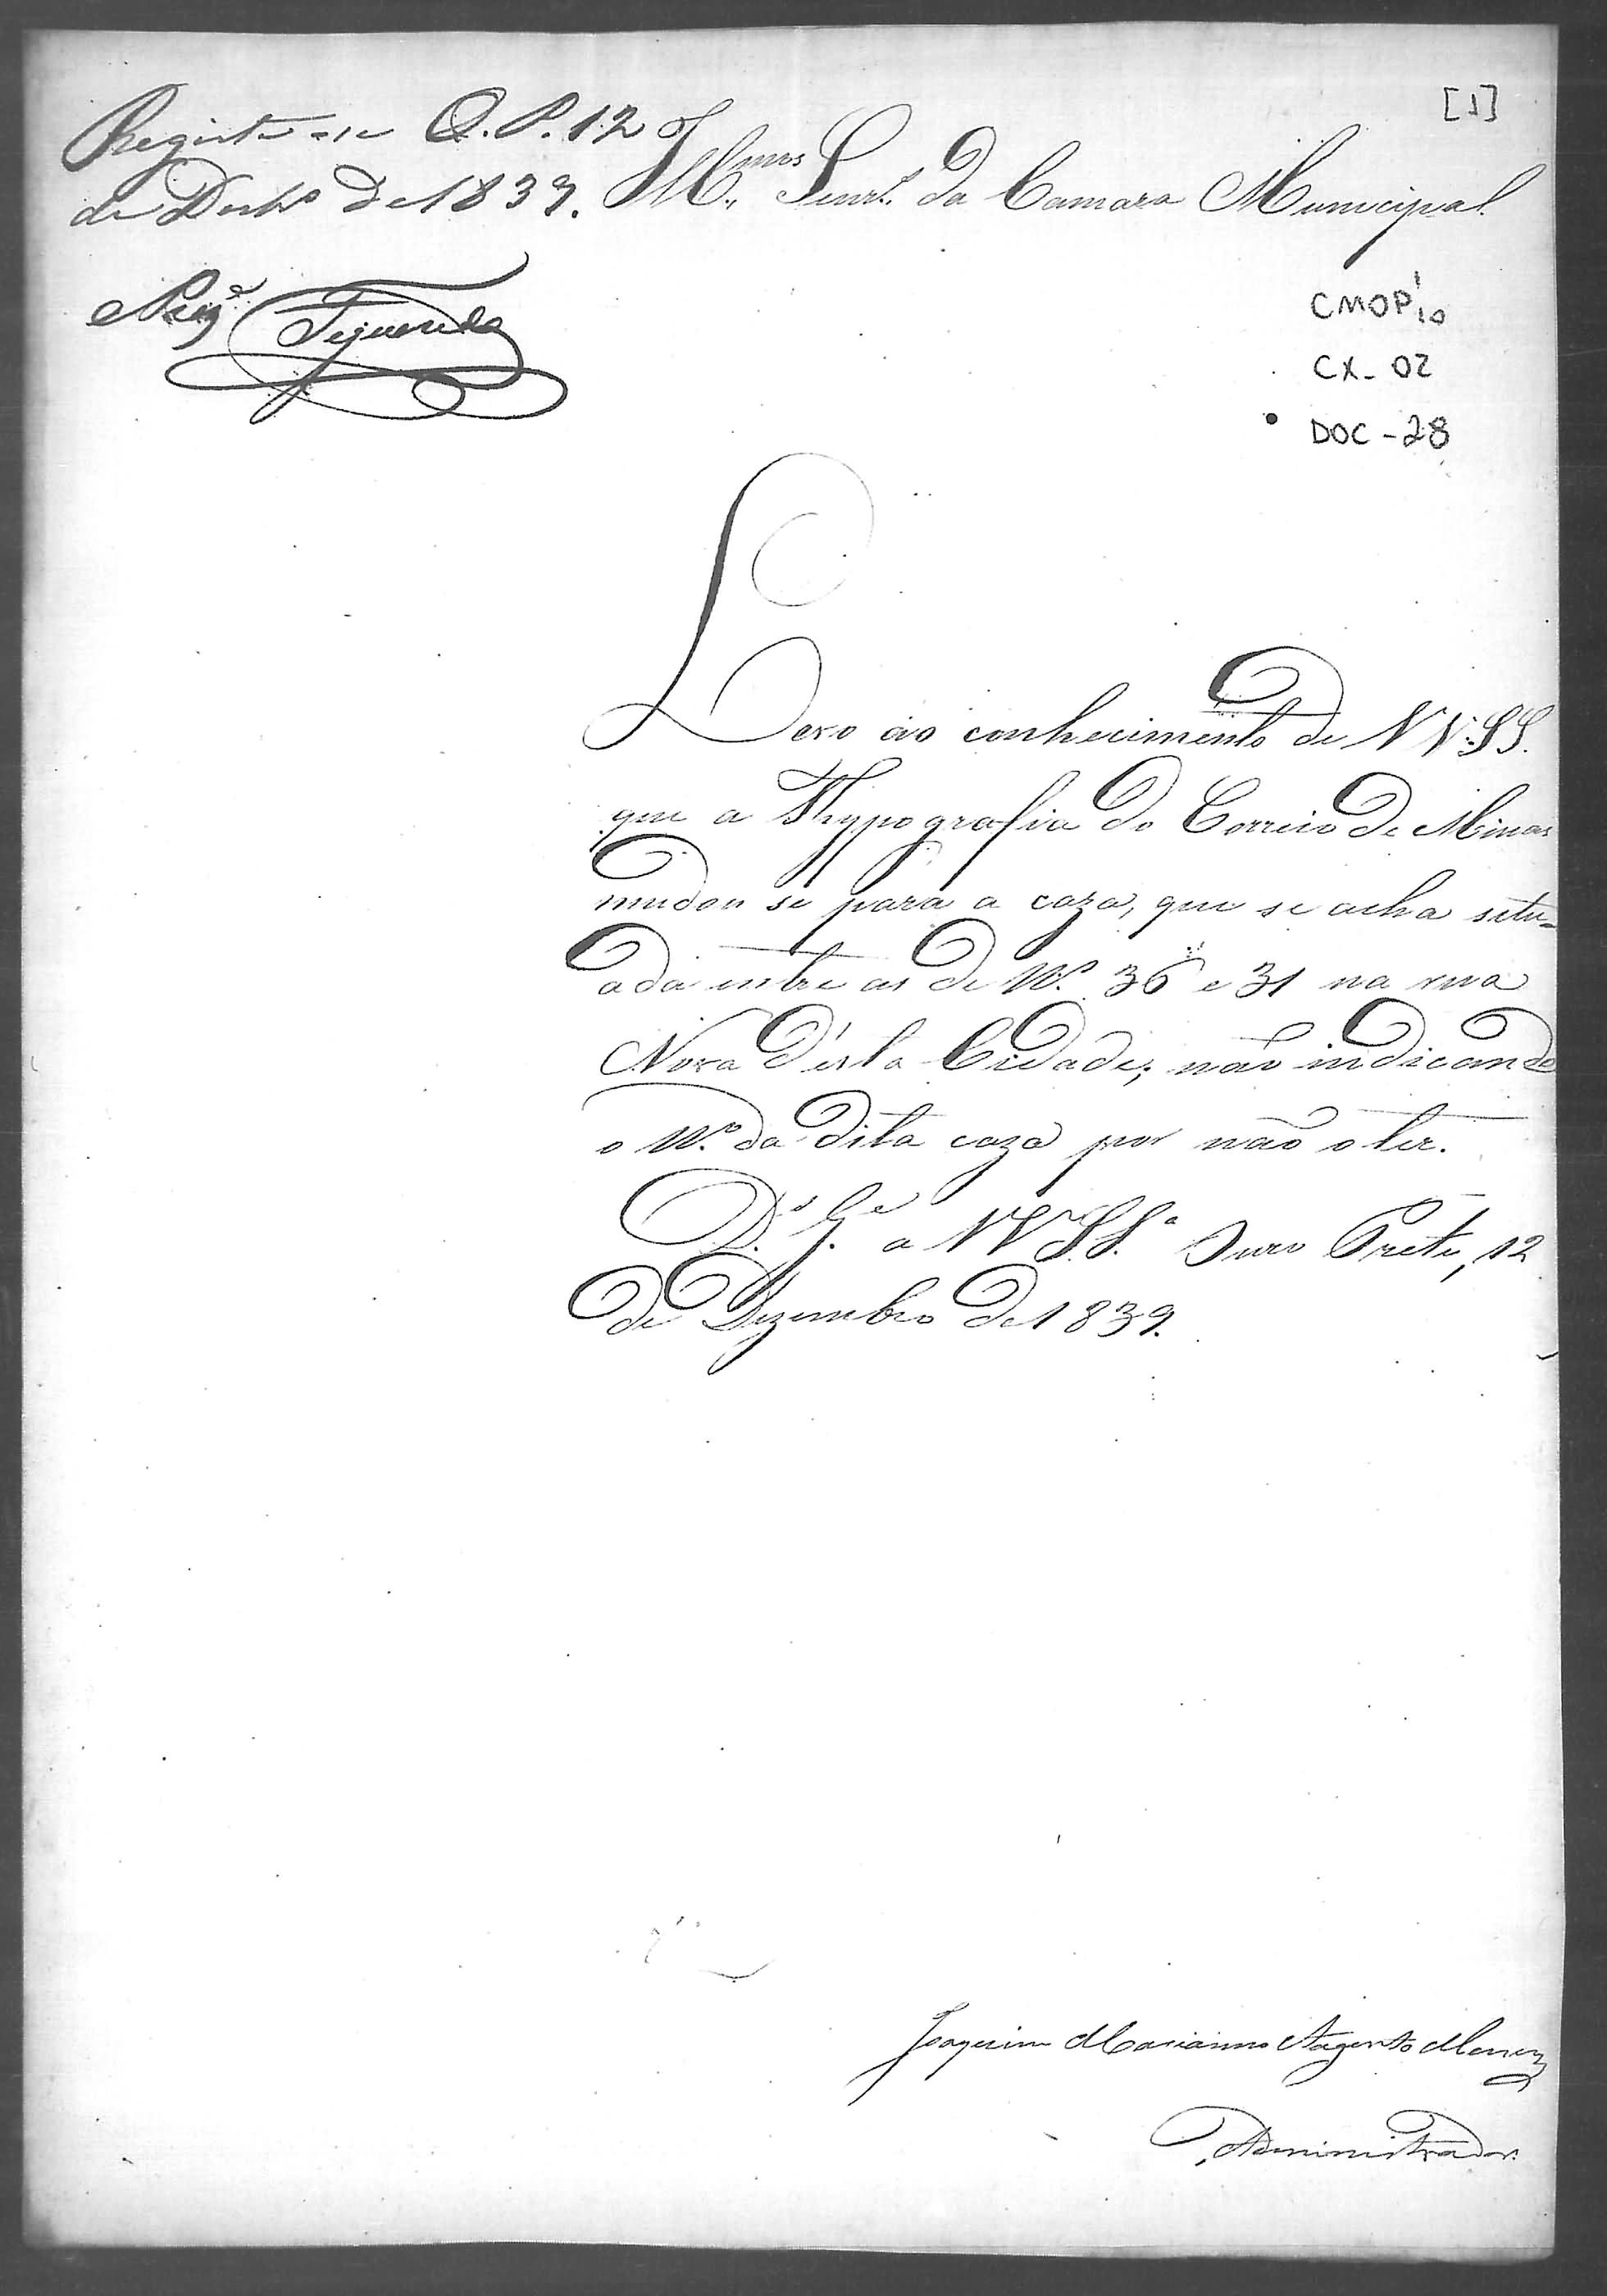 [1]
Registe-se O. P. 12
de Dezbro de 1839.
Figueredo
Illmos Senrs. da Camara Municipal.
CMOP 1/10
CX - 02
DOC - 28
Levo ao conhecimento de VV. SS.
que a Thypografia do Correio de Minas
mudou se para a caza, que se acha situ-
ada entre as de Nos. 36 e 31 na rua
Nova d'esta Cidade; não indicando
o No. da dita caza por não o ter.
Ds. Ge. a VV. SSas. Ouro Preto, 12
de Dezembro de 1839.
Joaquim Marianno Augusto Menez
Administrador.